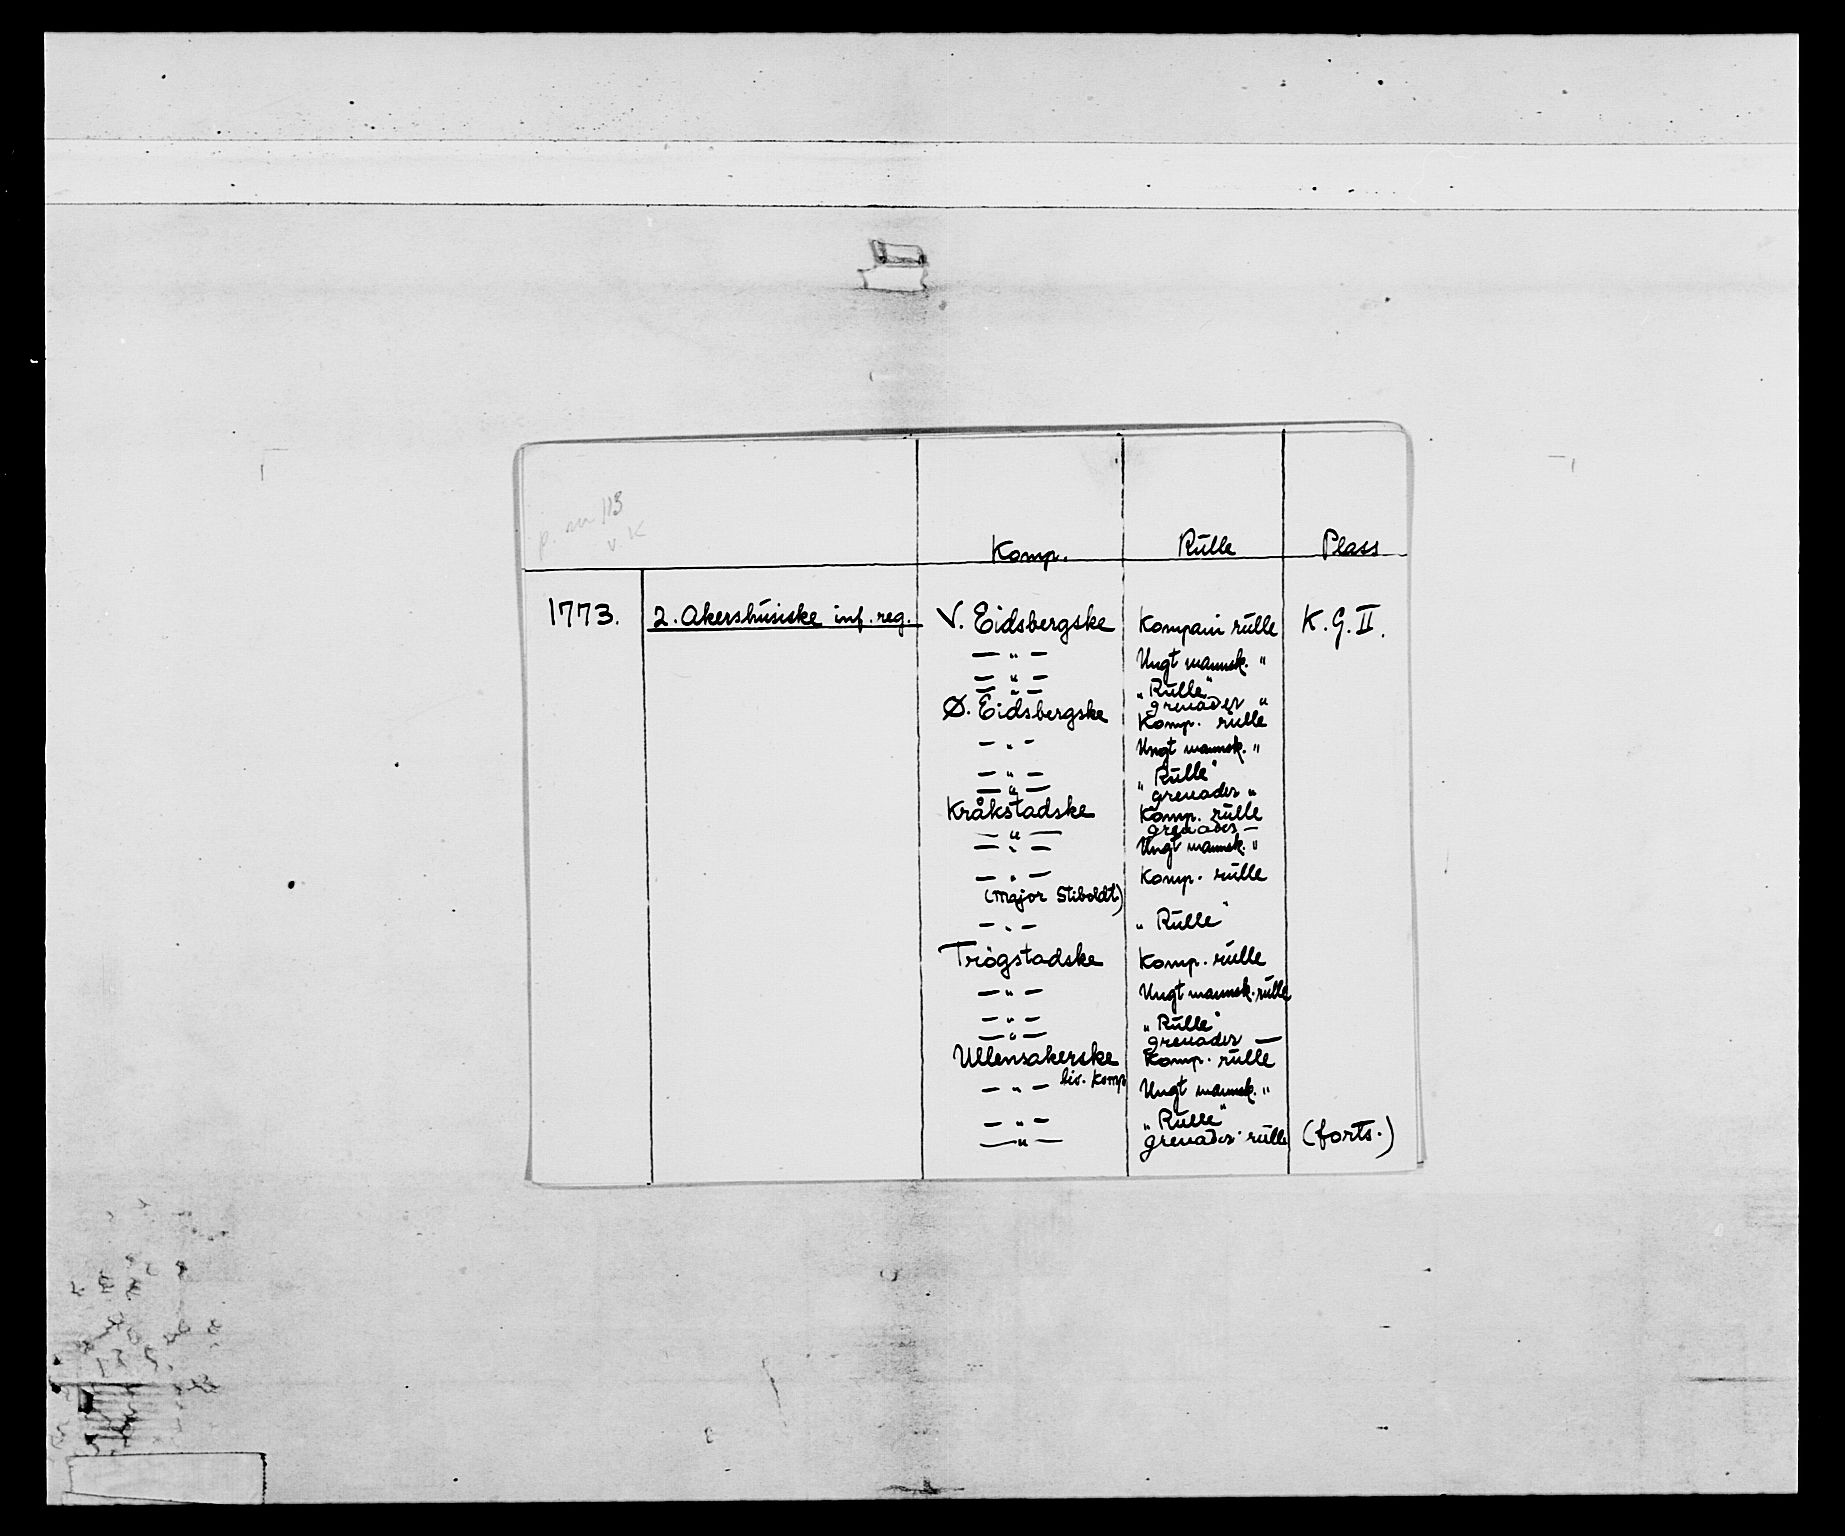 p. nr 113
v. K
Komp. Rulle Plass
1773. 2. Akershusiske inf. reg. V. Eidsbergske Kompani rulle K.G.II.
— " — Ungt mannsk. "
— " — " Rulle "
— " — grenader "
Ø. Eidsbergske Komp. rulle
— " — Ungt mannsk. "
— " — " Rulle "
— " — " grenader "
Kråkstadske Komp. rulle
— " — grenader —
— " — Ungt mannsk. "
— " — Komp. rulle
(Major Stiboldt)
— " — " Rulle "
Trögstadske Komp. rulle
— " — Ungt mannsk. rulle
— " — " Rulle "
— " — grenader —
Ullensakerske Komp. rulle
liv. Komp
— " — Ungt mannsk. "
— " — " Rulle "
— " — grenader rulle (forts.)